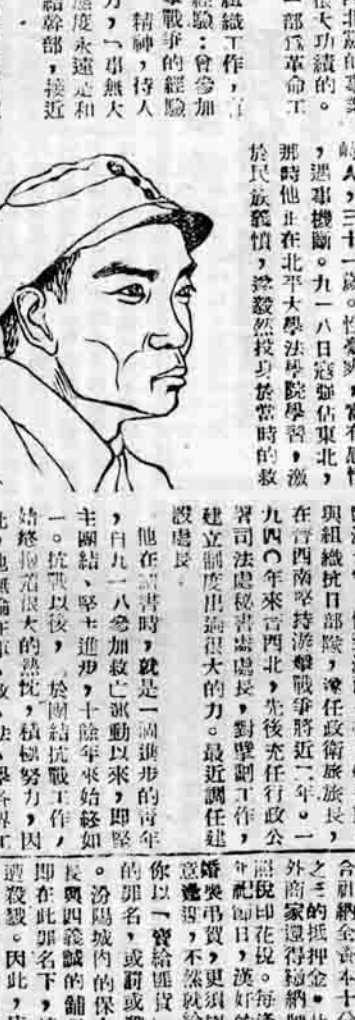 很大功績的。
一部爲革命工
組織工作，
經驗：曾參加
爭戰爭的經驗
精神，待人
力，「事無大
態度永遠是和
結幹部，接近
人，三十一歲。性豪爽，富有感情
，遇事機斷。九一八日寇強佔東北，
那時他正在北平大學法學院學習，激
於民族義憤，遂毅然投身於當時的救
與組織抗日部隊，遂任政衛旅旅長，
在晉西南堅持游擊戰爭將近二年。一
九四〇年來晉西北，先後充任行政公
署司法處秘書處處長，對擘劃工作，
建立制度出過很大的力。最近調任建
設處長。
他在讀書時，就是一個進步的青年
，自九一八參加救亡運動以來，即堅
主團結、堅主進步，十餘年來始終如
一。抗戰以後，於團結抗戰工作，
始終抱着很大的熱忱，積極努力，因
之三的抵押金。
外商家還得繳納
照稅印花稅。每逢
年祀節日，漢奸的
婚喪弔賀，更須
意逢迎，不然就給
你以「賣給匪貨」
的罪名，或罰或
。汾陽城內的保
長與四義誠的舖
即在此罪名下，
遭殺戮。因此，